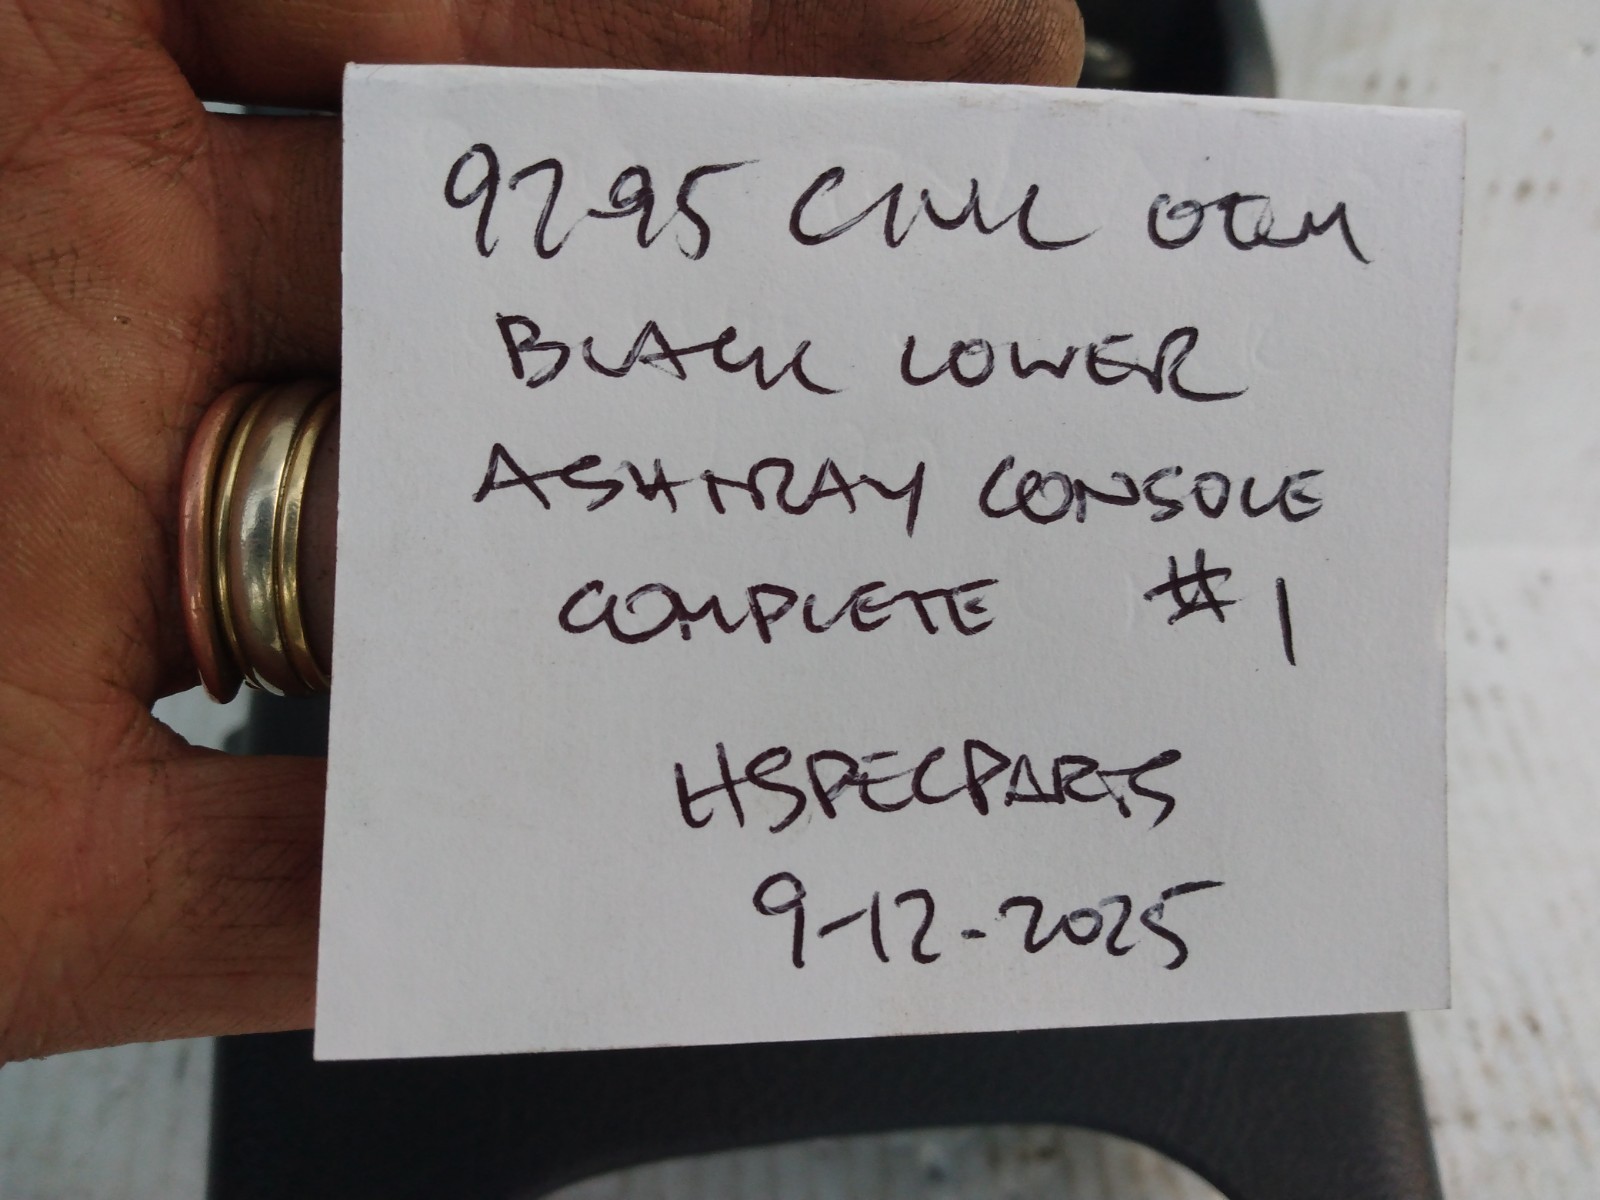 92-95 CIVIC OEM
BLACK LOWER
ASHTRAY CONSOLE
COMPLETE #1
HSPECPARTS
9-12-2025